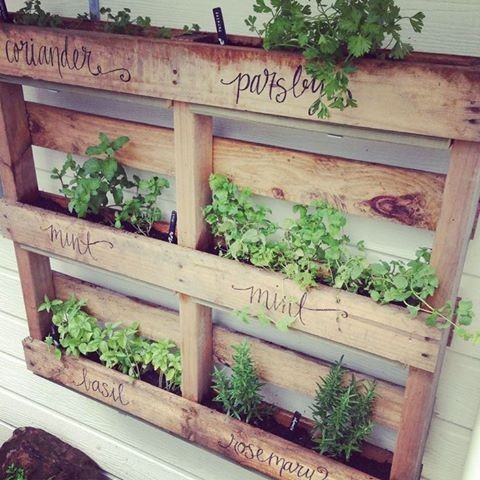 coriander
parsley
mint
mint
basil
rosemary